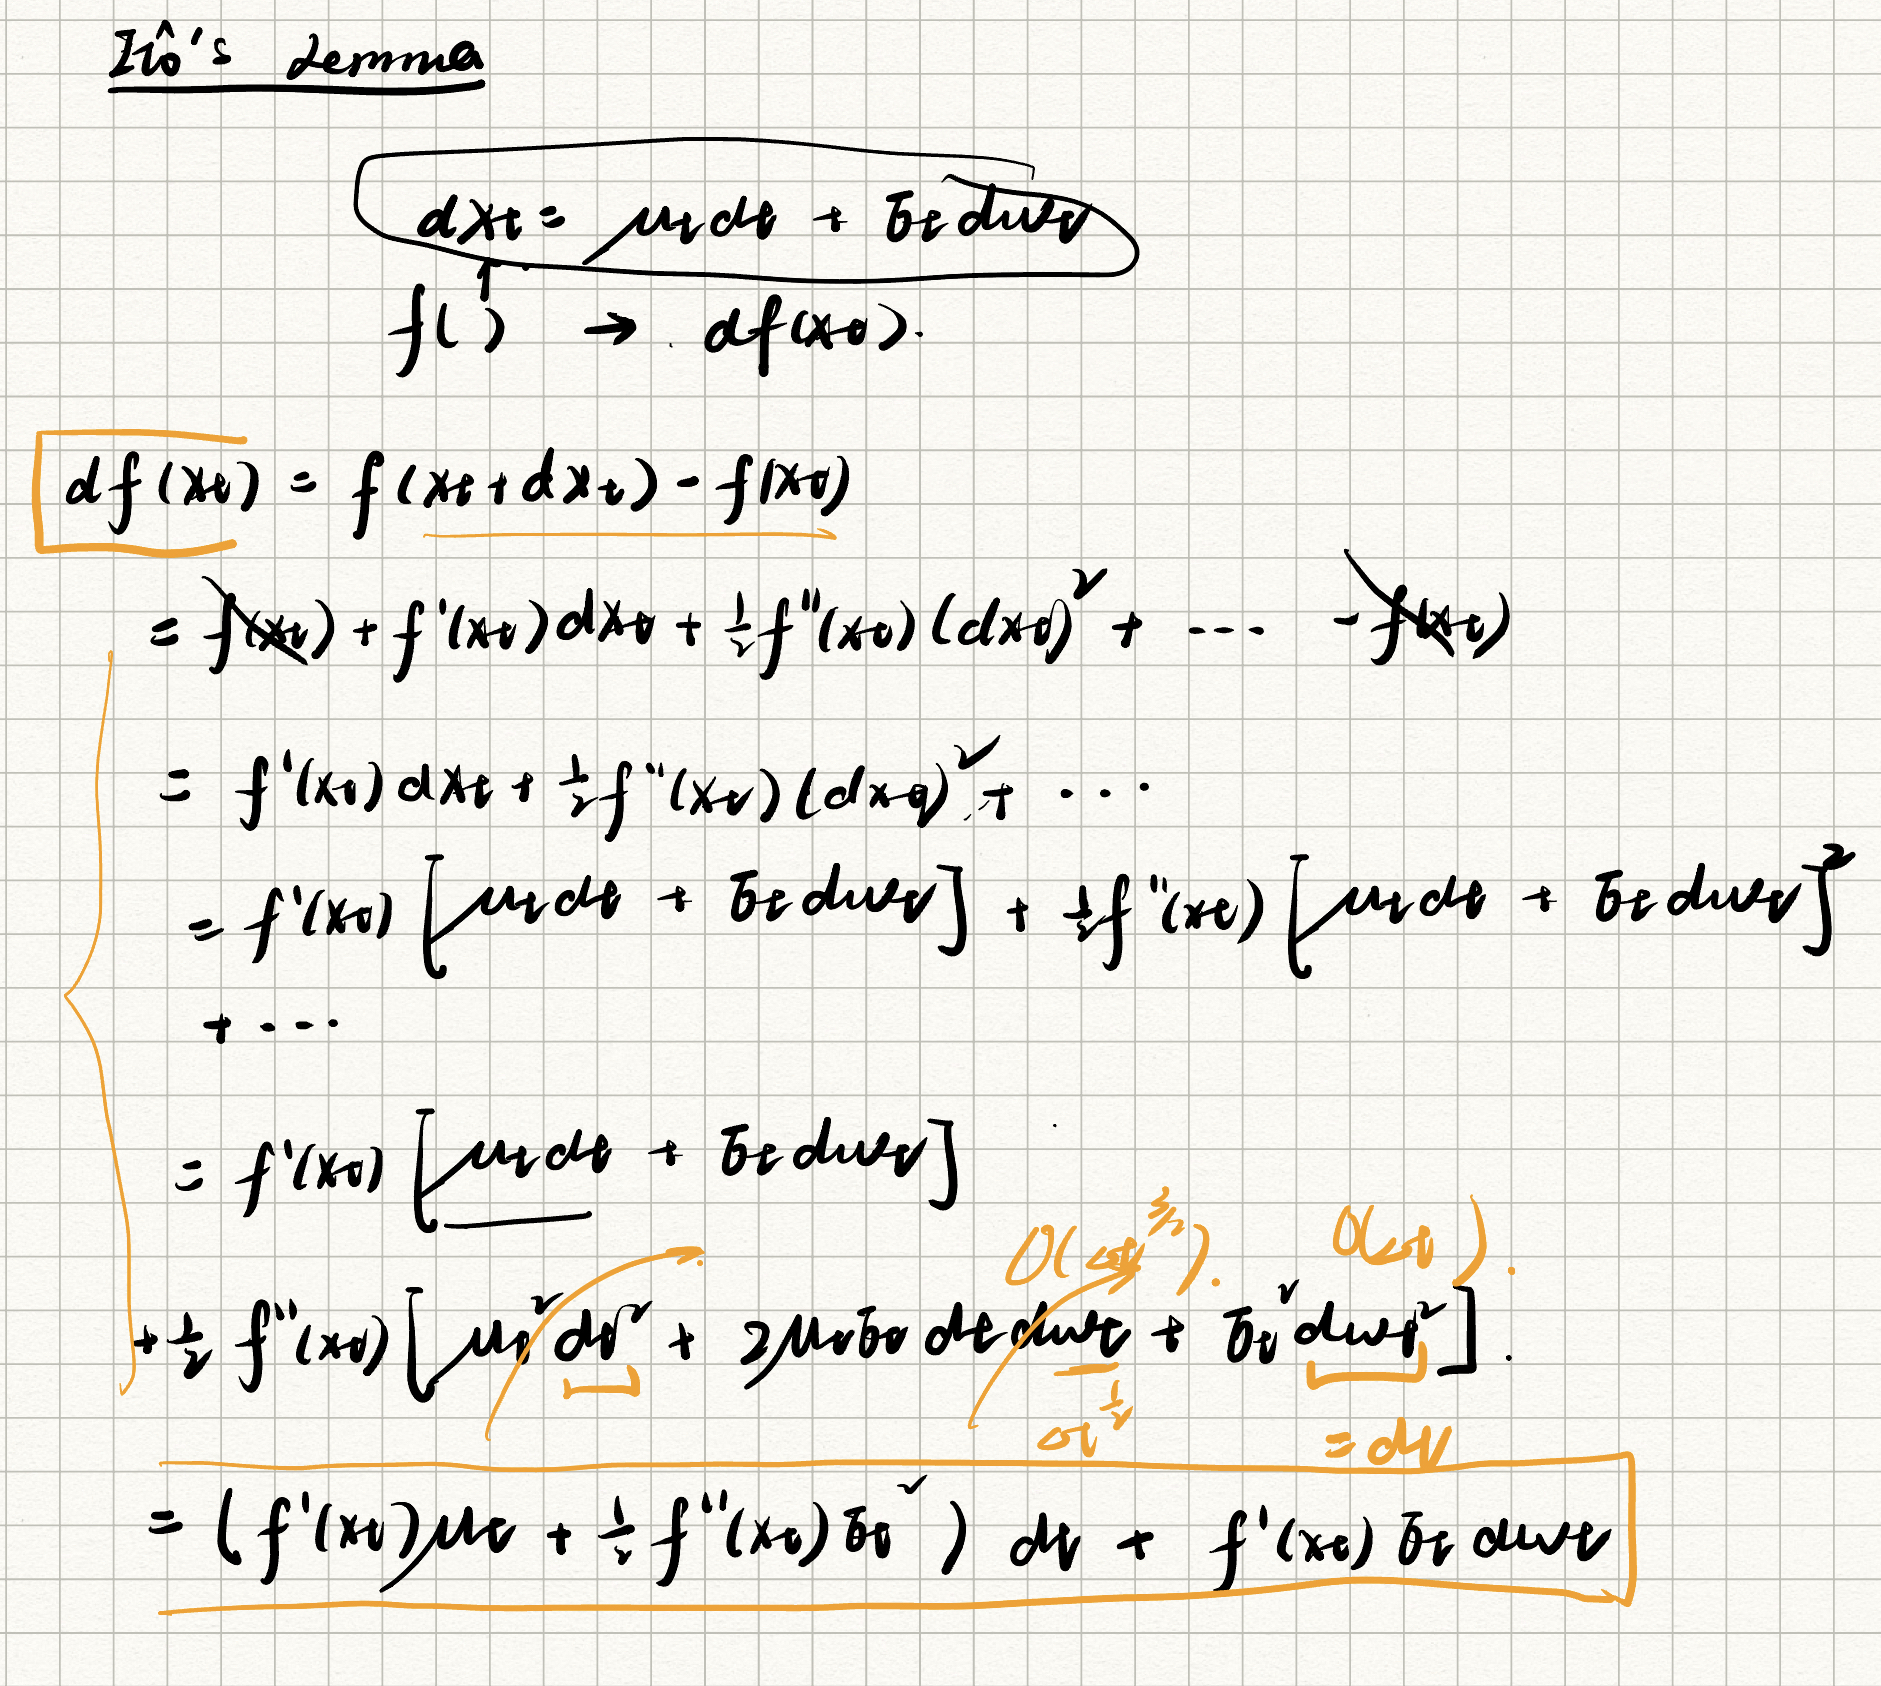 Itô's Lemma
dXt = μt dt + σt dWt
f( ) → df(Xt).
df(Xt) = f(Xt + dXt) - f(Xt)
= f(Xt) + f'(Xt) dXt + 1/2 f''(Xt) (dXt)² + --- - f(Xt)
= f'(Xt) dXt + 1/2 f''(Xt) (dXt)² + ...
= f'(Xt) [μt dt + σt dWt] + 1/2 f''(Xt) [μt dt + σt dWt]²
+ ...
= f'(Xt) [μt dt + σt dWt]
O(Δt^3/2). O(Δt).
+ 1/2 f''(Xt) [μt² dt² + 2μtσt dt dWt + σt² dWt²].
Δt^1/2 = dt
= (f'(Xt) μt + 1/2 f''(Xt) σt²) dt + f'(Xt) σt dWt